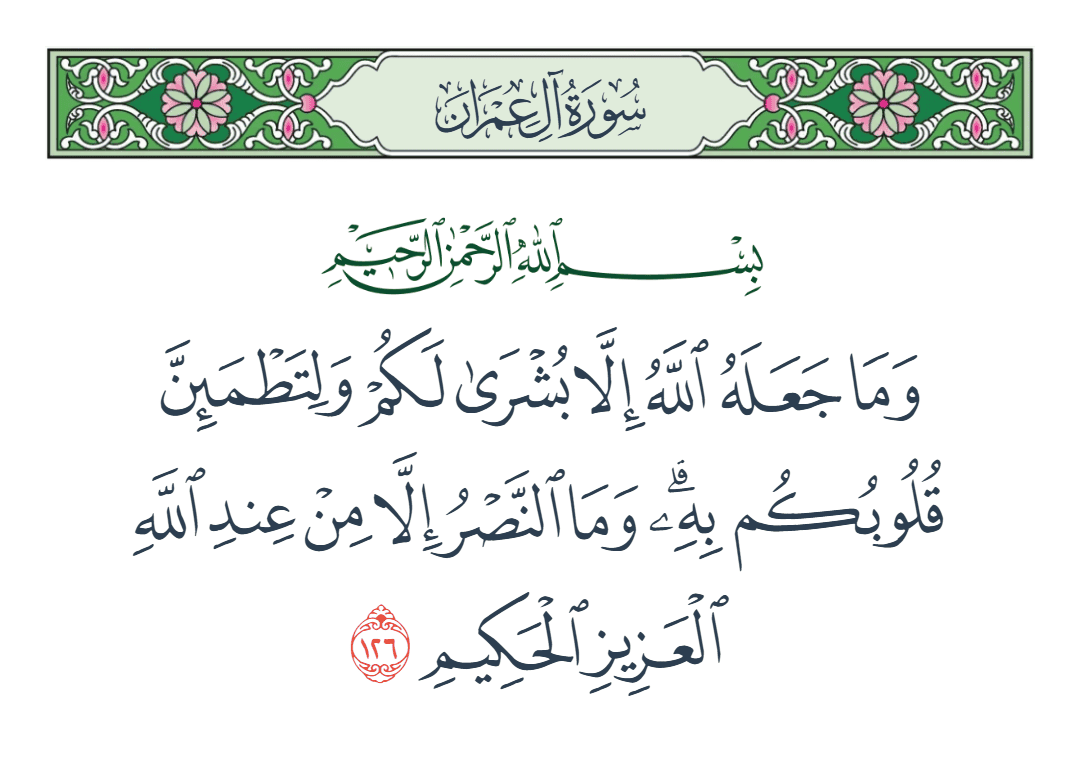 سُورَةُ آلِ عِمْرَانَ
بِسْمِ ٱللَّهِ ٱلرَّحْمَٰنِ ٱلرَّحِيمِ
وَمَا جَعَلَهُ ٱللَّهُ إِلَّا بُشْرَىٰ لَكُمْ وَلِتَطْمَئِنَّ
قُلُوبُكُم بِهِۦۗ وَمَا ٱلنَّصْرُ إِلَّا مِنْ عِندِ ٱللَّهِ
ٱلْعَزِيزِ ٱلْحَكِيمِ ١٢٦